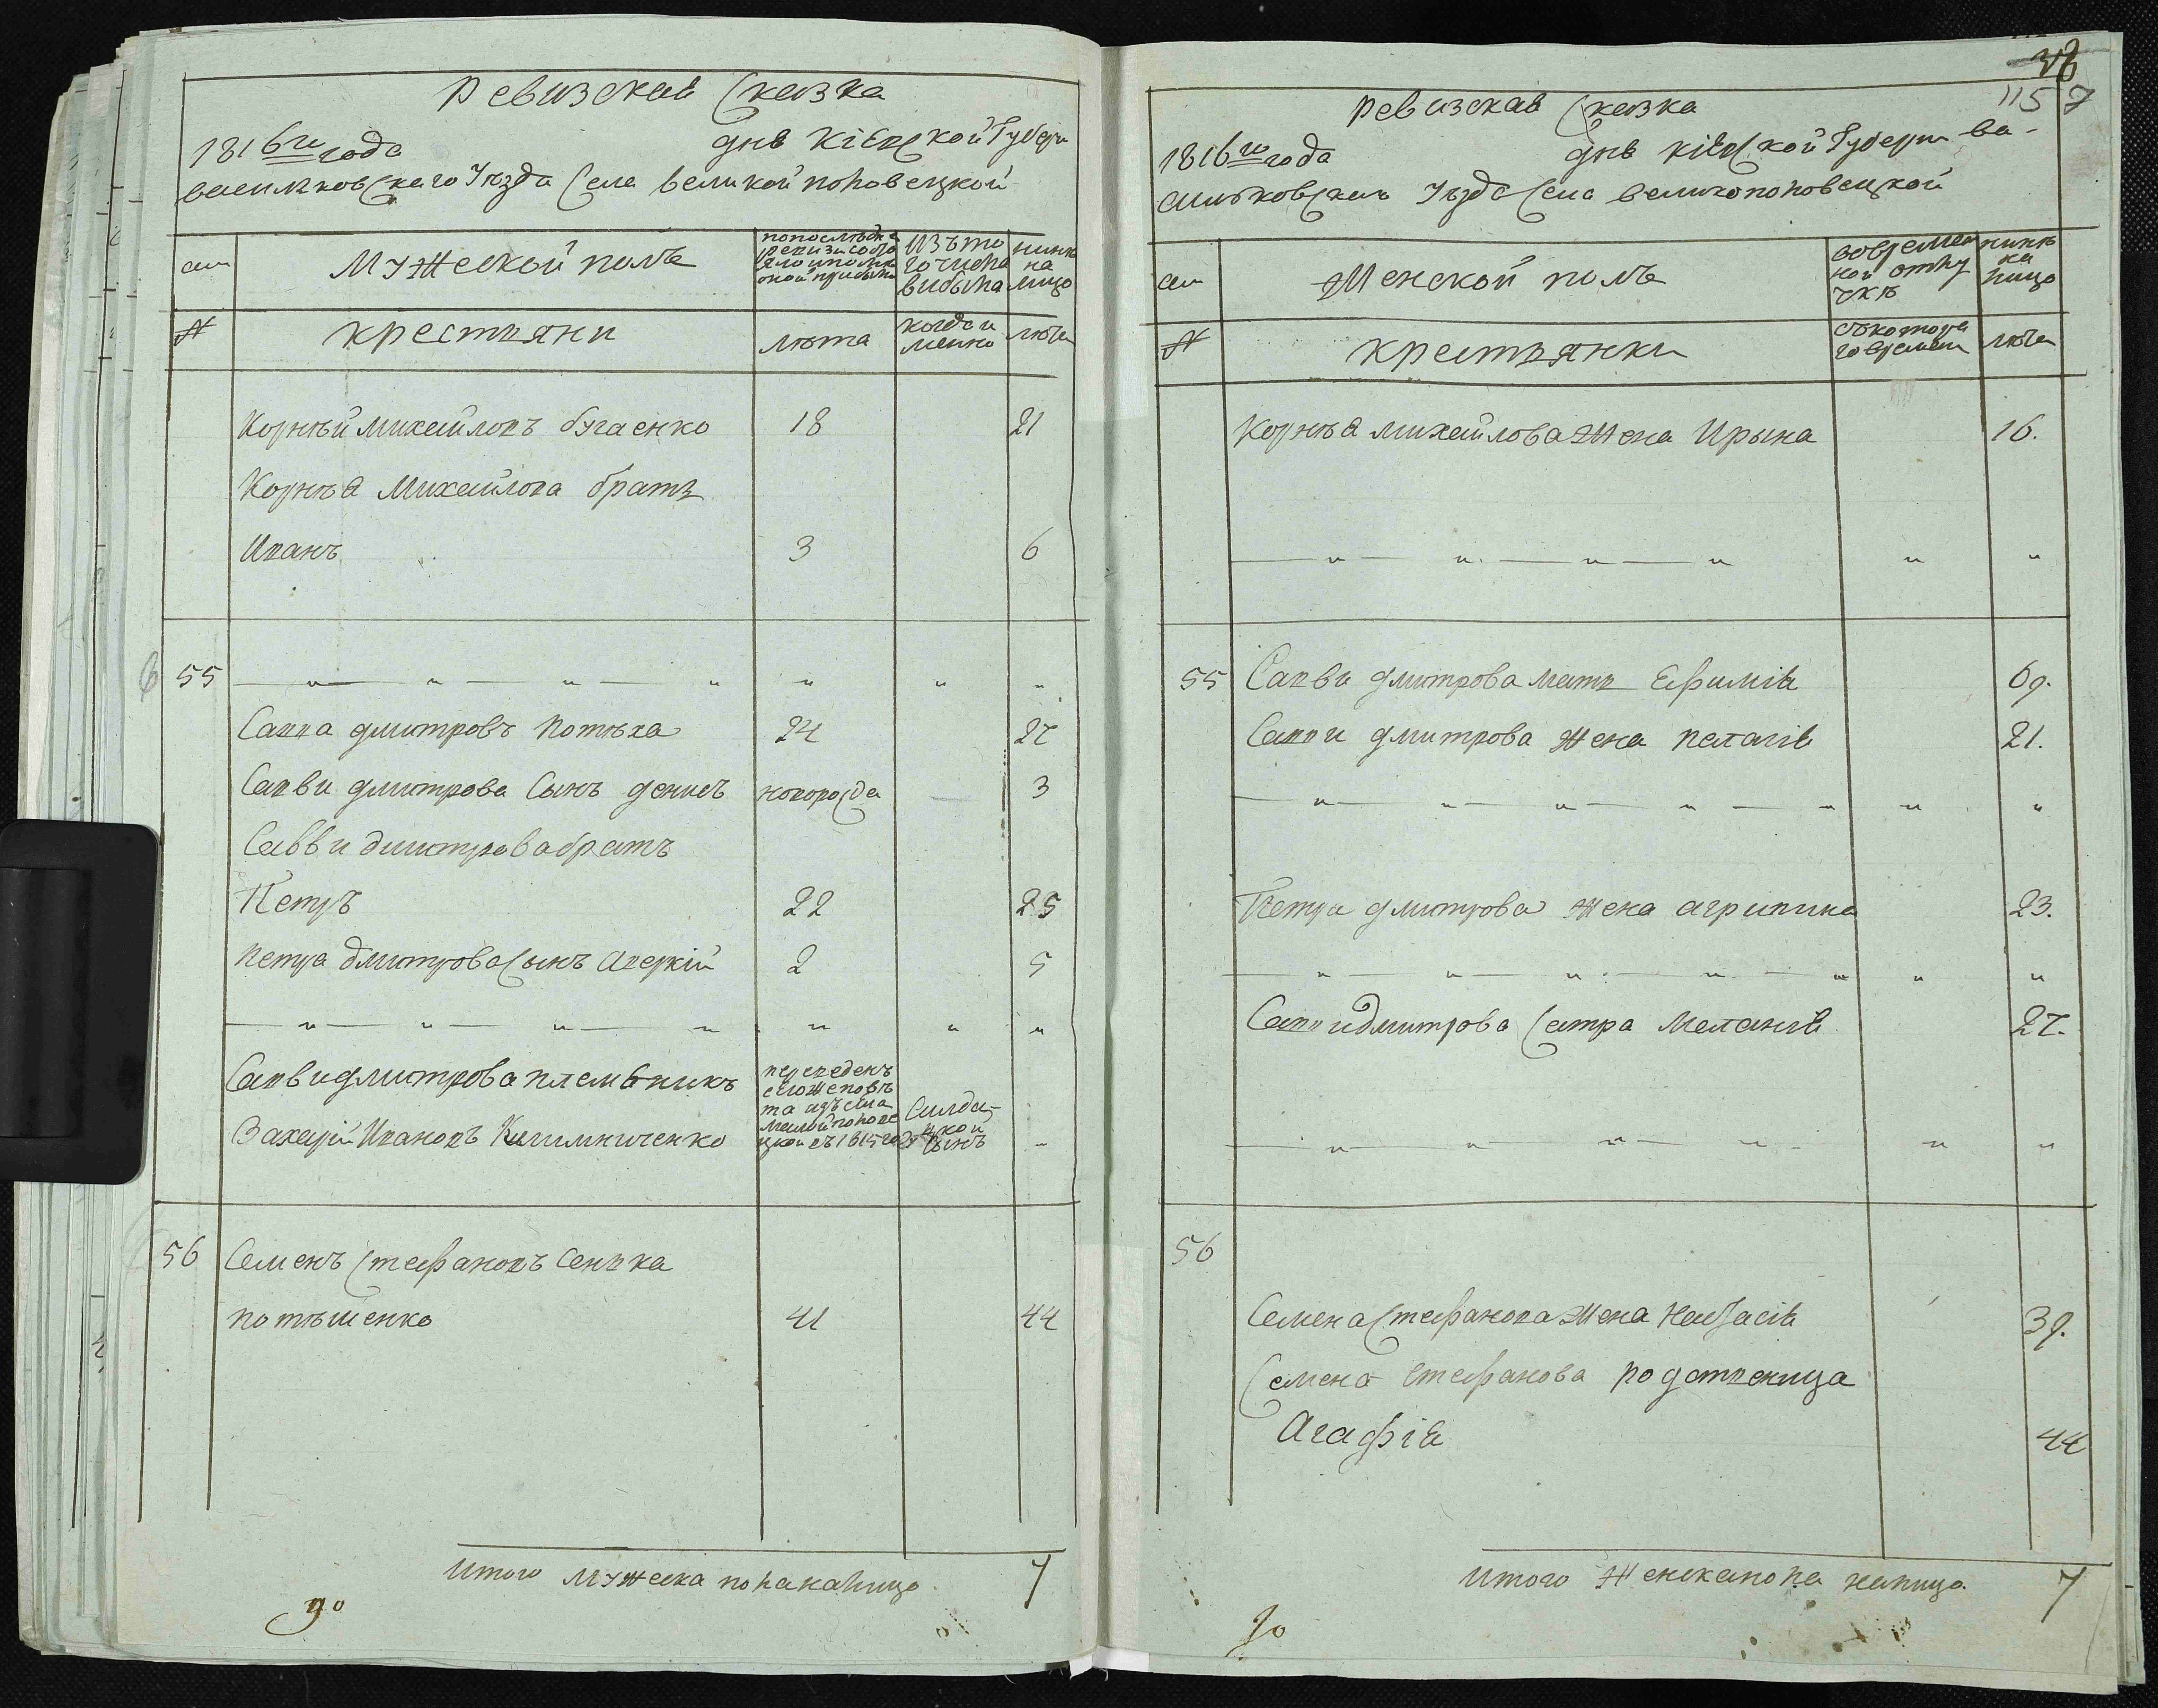 Ревизская Сказка
1816го года дня Кіевской Губерн
васильковскаго Уезда Села великой поповецкой
Мужеской полъ
попоследне ревизи состо яло и после оной прибыло
изъ то го числа выбыло
ныне на лицо
№
крестьяни
лета
когда и менно
лета
Корней михайловъ бугаенко 18 21
Корнея Михайлова братъ
Иванъ 3 6
55 — " — " — " " " " "
Савва дмитровъ Потеха 24 27
Савви дмитрова Сынъ денисъ новорозда — 3
Савви дмитрова братъ
Петръ 22 25
Петра дмитрова Сынъ Аверкій 2 5
— " — " — " — " " " "
Савви дмитрова племяникъ
переведенъ
изъ села
малой попове
цкой съ 1815 года
Салда
цкой
Сынъ
Захарій Ивановъ -
56 Семенъ Стефановъ Сенька
потешенко 41 44
Итого мужеска пола налицо 7
90
115 7
Ревизская Сказка
1816го года дня Кіевской Губерн ва-
сильковскаго Уезда Села великопоповецкой
Женской полъ
вовремен ной отлу чке
ныне на лицо
№
крестьянки
съкотора го времени
лета
Корнея михайлова жена Ирына 16.
— " — " — " — " " "
55 Савви дмитрова мать Ефимія 69.
Савви дмитрова жена пелагія 21.
— " — " — " — " — " " "
Петра дмитрова жена агрипина 23.
— " — " — " — " — " " "
Савви дмитрова Сестра Меланія 27.
— " — " — " — " — " "
56
Семена Стефанова жена Настасія 39.
Семена Стефанова родственица
Агафія 44
Итого женска пола налицо 7
90